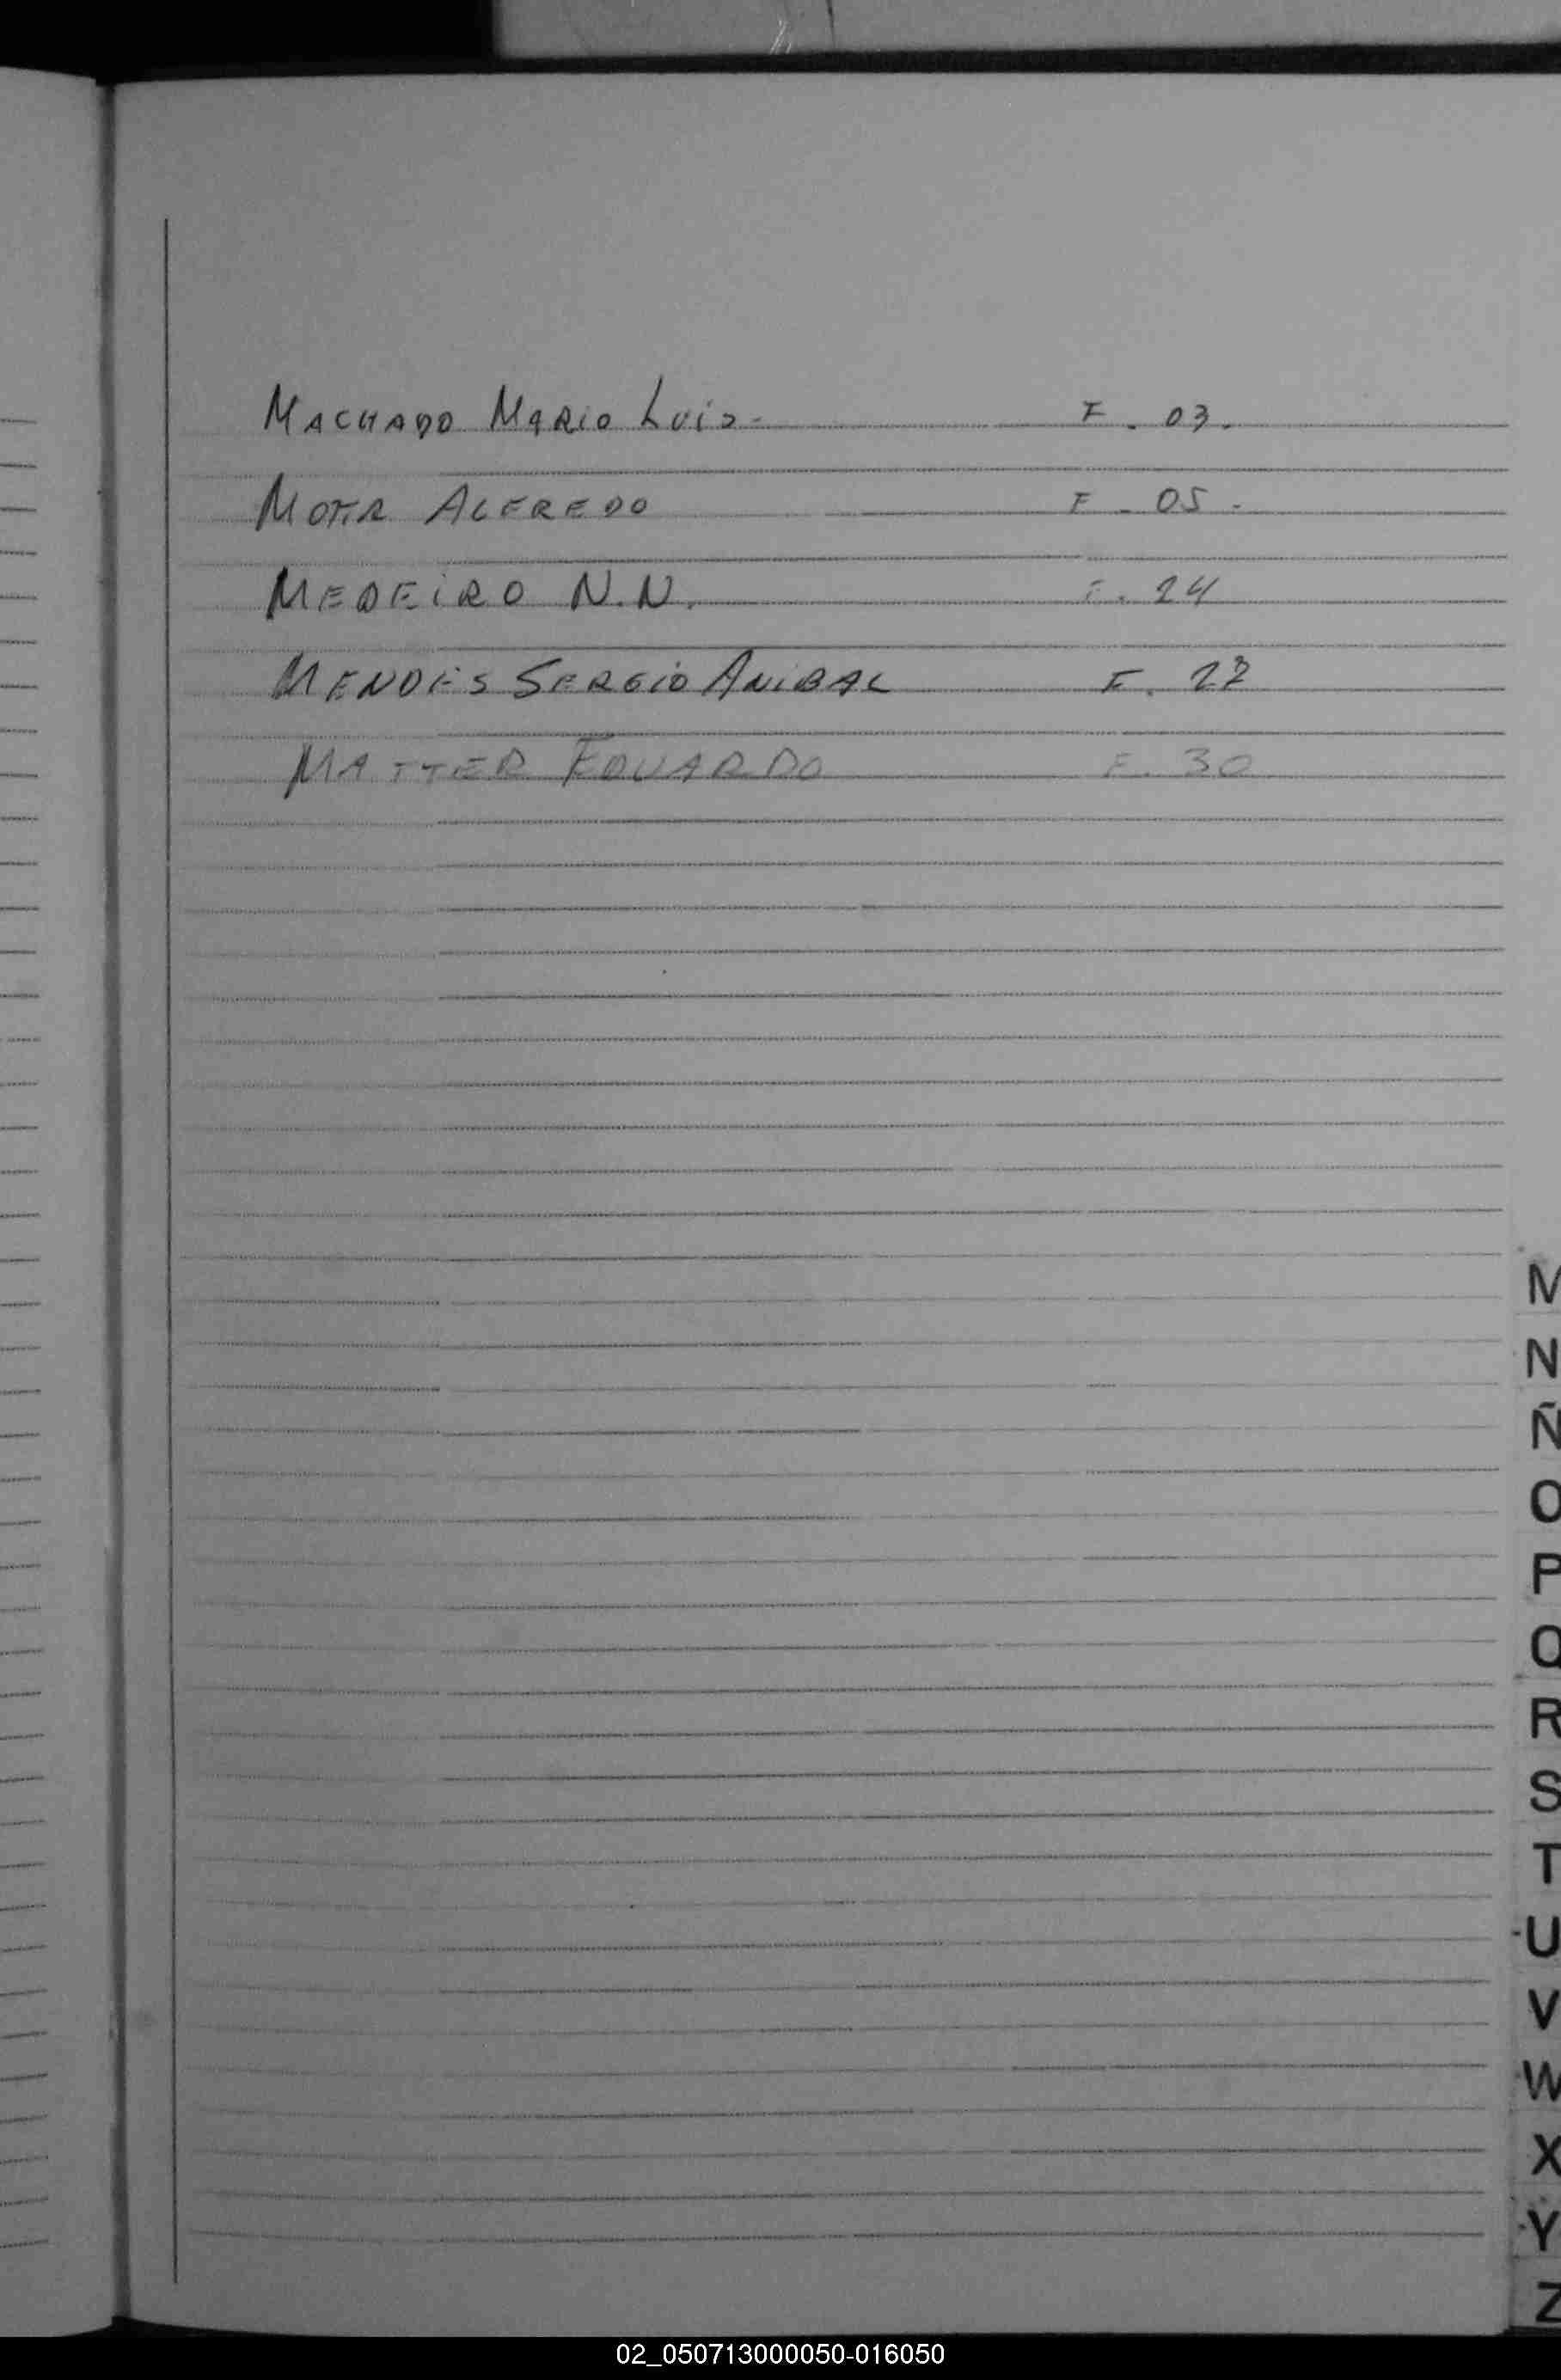 MACHADO MARIO LUIS - F. 03.
MOTTA ALFREDO F. 05.
MEDEIRO N.N. F. 24
MENDES SERGIO ANIBAL F.
MATTER EDUARDO F. 30
M
N
Ñ
O
P
Q
R
S
T
U
V
W
X
Y
Z
02_050713000050-016050